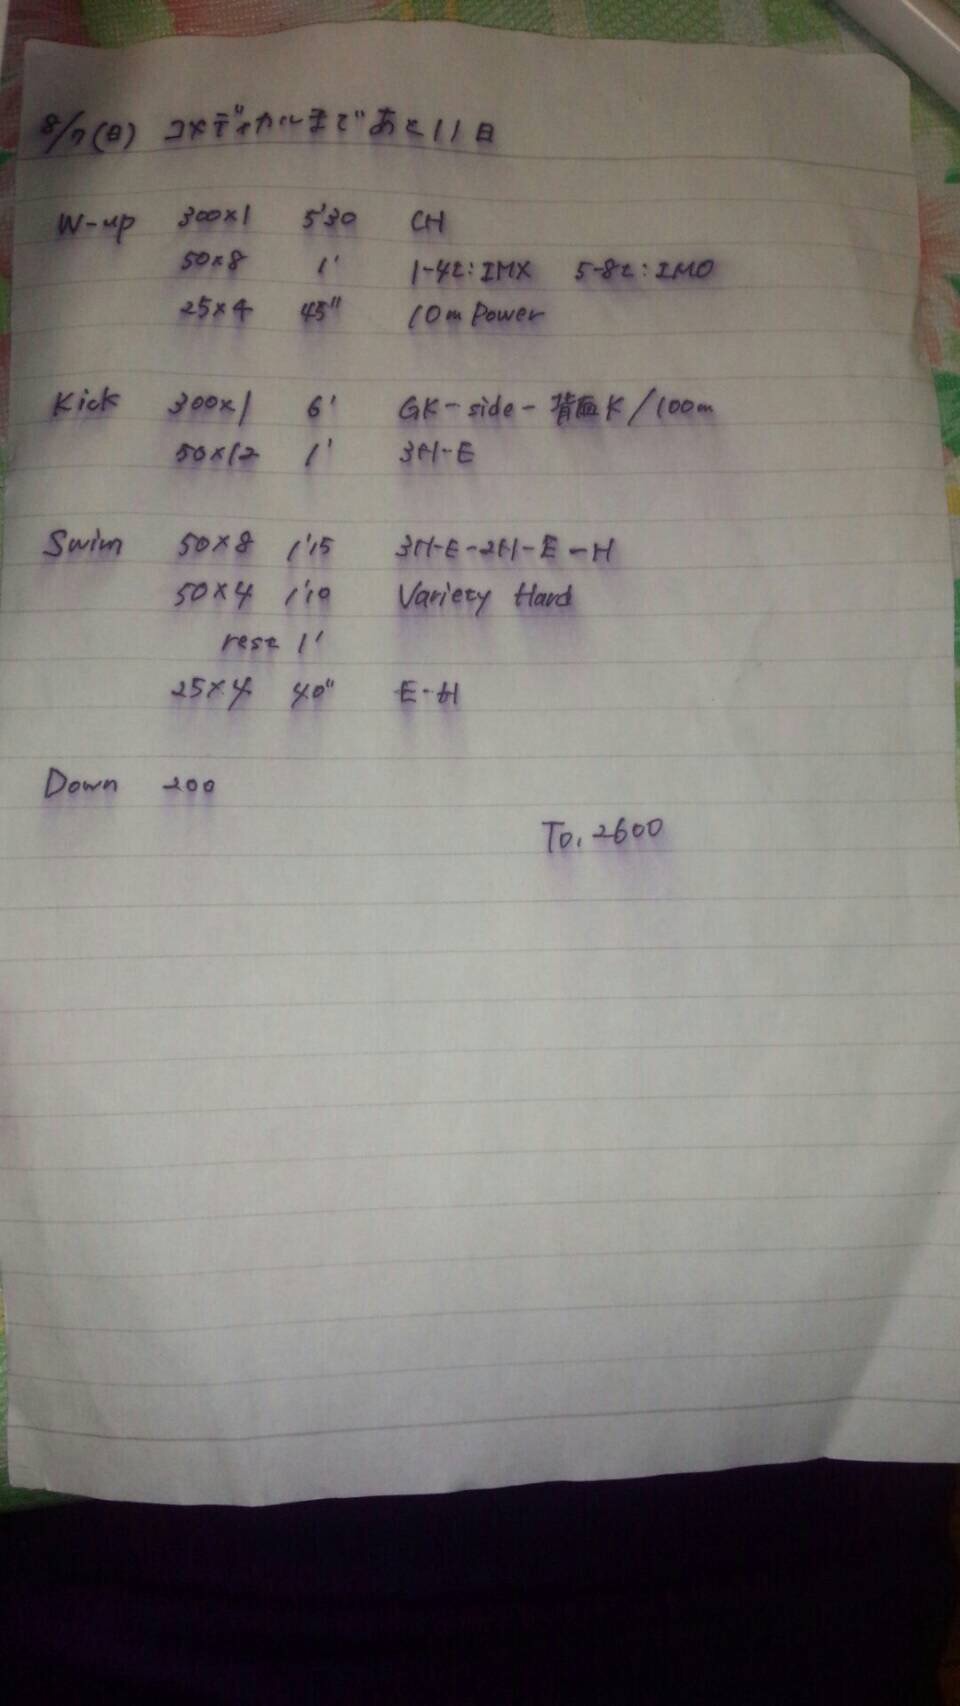 8/7(日) コメディカルまであと11日
W-up 300×1 5'30 CH
50×8 1' 1-4t:IMX 5-8t:IMO
25×4 45" 10m Power
Kick 300×1 6' GK-side-背面K/100m
50×12 1' 3H-E
Swim 50×8 1'15 3H-E-2H-E-H
50×4 1'10 Variety Hard
rest 1'
25×4 40" E-H
Down 200
To. 2600